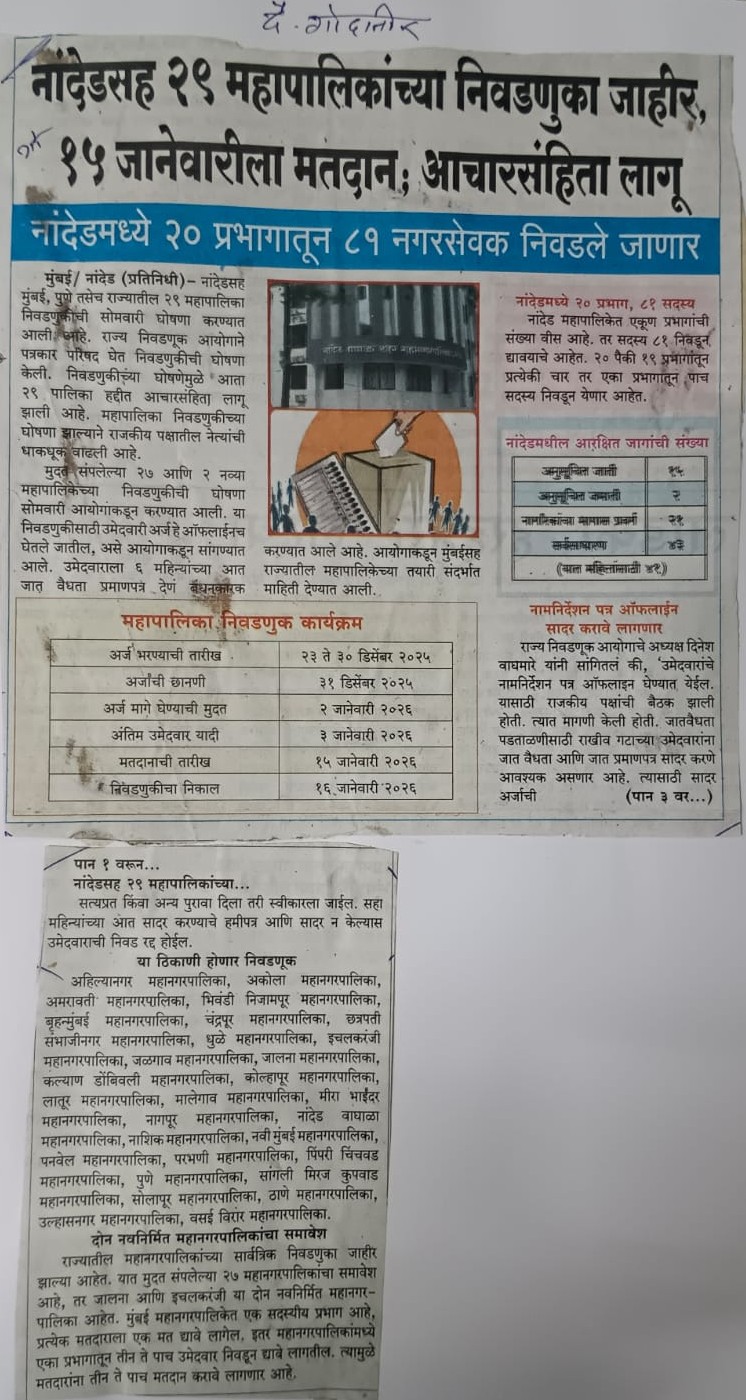 दै. गोदातीर
नांदेडसह २९ महापालिकांच्या निवडणुका जाहीर,
१५ जानेवारीला मतदान; आचारसंहिता लागू
नांदेडमध्ये २० प्रभागातून ८१ नगरसेवक निवडले जाणार
मुंबई/ नांदेड (प्रतिनिधी)– नांदेडसह
मुंबई, पुणे तसेच राज्यातील २९ महापालिका
निवडणुकीची सोमवारी घोषणा करण्यात
आली आहे. राज्य निवडणूक आयोगाने
पत्रकार परिषद घेत निवडणुकीची घोषणा
केली. निवडणुकीच्या घोषणेमुळे आता
२९ पालिका हद्दीत आचारसंहिता लागू
झाली आहे. महापालिका निवडणुकीच्या
घोषणा झाल्याने राजकीय पक्षातील नेत्यांची
धाकधूक वाढली आहे.
मुदत संपलेल्या २७ आणि २ नव्या
महापालिकेच्या निवडणुकीची घोषणा
सोमवारी आयोगाकडून करण्यात आली. या
निवडणुकीसाठी उमेदवारी अर्ज हे ऑफलाईनच
घेतले जातील, असे आयोगाकडून सांगण्यात
आले. उमेदवाराला ६ महिन्यांच्या आत
जात वैधता प्रमाणपत्र देणं बंधनकारक
करण्यात आले आहे. आयोगाकडून मुंबईसह
राज्यातील महापालिकेच्या तयारी संदर्भात
माहिती देण्यात आली.
नांदेडमध्ये २० प्रभाग, ८१ सदस्य
नांदेड महापालिकेत एकूण प्रभागांची
संख्या वीस आहे. तर सदस्य ८१ निवडून
द्यावयाचे आहेत. २० पैकी १९ प्रभागांतून
प्रत्येकी चार तर एका प्रभागातून पाच
सदस्य निवडून येणार आहेत.
नांदेडमधील आरक्षित जागांची संख्या
अनुसूचित जाती १५
अनुसूचित जमाती २
नागरिकांचा मागास प्रवर्ग २१
सर्वसाधारण ४३
(यात महिलांसाठी ४१)
नामनिर्देशन पत्र ऑफलाईन
सादर करावे लागणार
राज्य निवडणूक आयोगाचे अध्यक्ष दिनेश
वाघमारे यांनी सांगितलं की, 'उमेदवारांचे
नामनिर्देशन पत्र ऑफलाइन घेण्यात येईल.
यासाठी राजकीय पक्षांची बैठक झाली
होती. त्यात मागणी केली होती. जातवैधता
पडताळणीसाठी राखीव गटाच्या उमेदवारांना
जात वैधता आणि जात प्रमाणपत्र सादर करणे
आवश्यक असणार आहे. त्यासाठी सादर
अर्जाची (पान ३ वर...)
महापालिका निवडणुक कार्यक्रम
अर्ज भरण्याची तारीख २३ ते ३० डिसेंबर २०२५
अर्जांची छाननी ३१ डिसेंबर २०२५
अर्ज मागे घेण्याची मुदत २ जानेवारी २०२६
अंतिम उमेदवार यादी ३ जानेवारी २०२६
मतदानाची तारीख १५ जानेवारी २०२६
निवडणुकीचा निकाल १६ जानेवारी २०२६
पान १ वरून...
नांदेडसह २९ महापालिकांच्या...
सत्यप्रत किंवा अन्य पुरावा दिला तरी स्वीकारला जाईल. सहा
महिन्यांच्या आत सादर करण्याचे हमीपत्र आणि सादर न केल्यास
उमेदवाराची निवड रद्द होईल.
या ठिकाणी होणार निवडणूक
अहिल्यानगर महानगरपालिका, अकोला महानगरपालिका,
अमरावती महानगरपालिका, भिवंडी निजामपूर महानगरपालिका,
बृहन्मुंबई महानगरपालिका, चंद्रपूर महानगरपालिका, छत्रपती
संभाजीनगर महानगरपालिका, धुळे महानगरपालिका, इचलकरंजी
महानगरपालिका, जळगाव महानगरपालिका, जालना महानगरपालिका,
कल्याण डोंबिवली महानगरपालिका, कोल्हापूर महानगरपालिका,
लातूर महानगरपालिका, मालेगाव महानगरपालिका, मीरा भाईंदर
महानगरपालिका, नागपूर महानगरपालिका, नांदेड वाघाळा
महानगरपालिका, नाशिक महानगरपालिका, नवी मुंबई महानगरपालिका,
पनवेल महानगरपालिका, परभणी महानगरपालिका, पिंपरी चिंचवड
महानगरपालिका, पुणे महानगरपालिका, सांगली मिरज कुपवाड
महानगरपालिका, सोलापूर महानगरपालिका, ठाणे महानगरपालिका,
उल्हासनगर महानगरपालिका, वसई विरार महानगरपालिका.
दोन नवनिर्मित महानगरपालिकांचा समावेश
राज्यातील महानगरपालिकांच्या सार्वत्रिक निवडणुका जाहीर
झाल्या आहेत. यात मुदत संपलेल्या २७ महानगरपालिकांचा समावेश
आहे, तर जालना आणि इचलकरंजी या दोन नवनिर्मित महानगर-
पालिका आहेत. मुंबई महानगरपालिकेत एक सदस्यीय प्रभाग आहे,
प्रत्येक मतदाराला एक मत द्यावे लागेल. इतर महानगरपालिकांमध्ये
एका प्रभागातून तीन ते पाच उमेदवार निवडून द्यावे लागतील. त्यामुळे
मतदारांना तीन ते पाच मतदान करावे लागणार आहे.